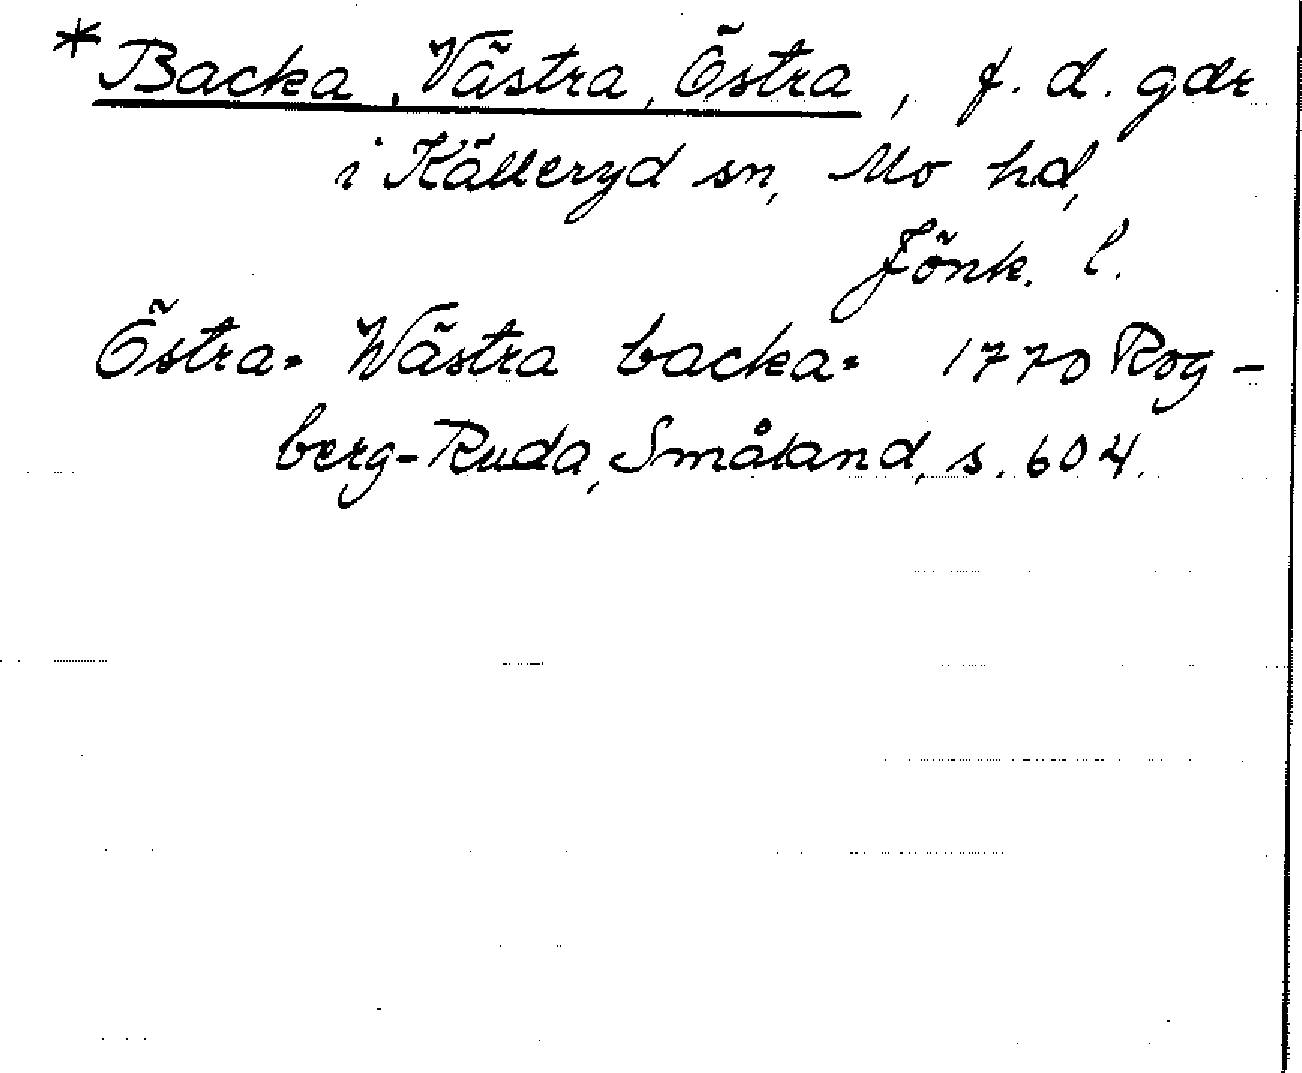 *Backa, Västra, Östra, f. d. gdr
i Källeryd sn, Mo hd,
Jönk. l.
Östra= Wästra backa= 1770 Rog-
berg-Ruda, Småland, s. 604.